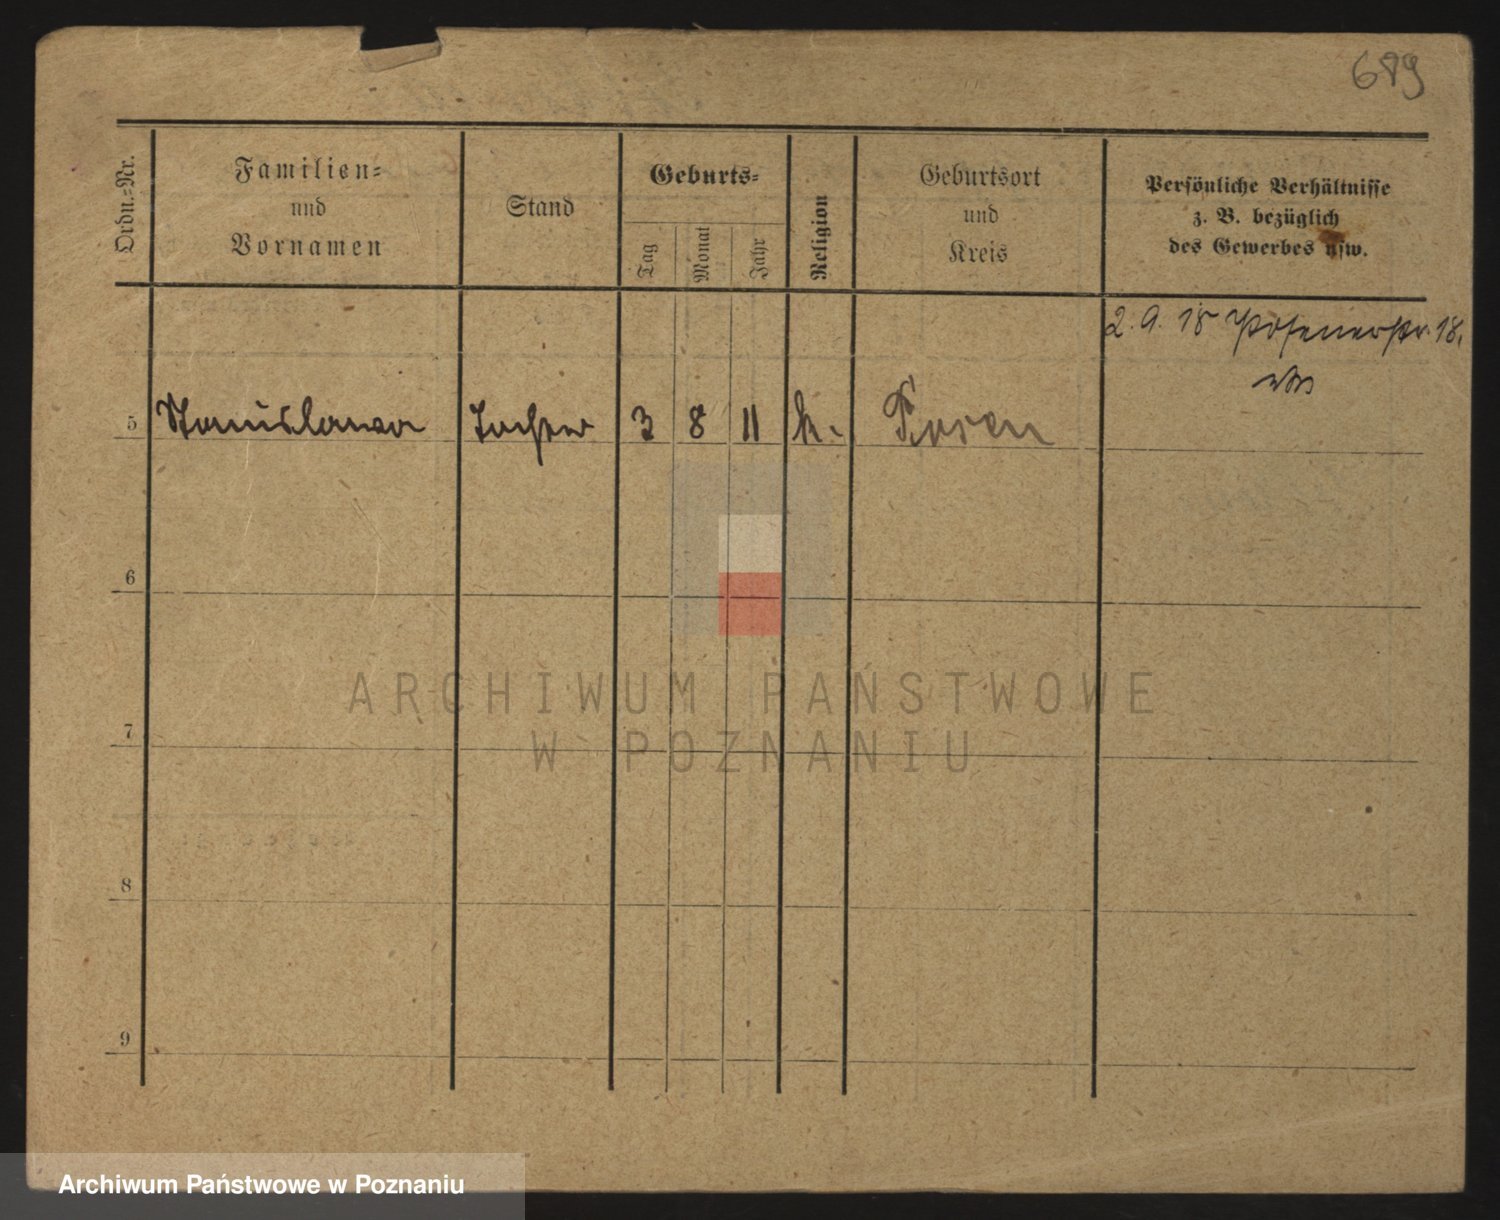 689
Ordn.-Nr.
Familien-
und
Vornamen
Stand
Geburts-
Tag
Monat
Jahr
Religion
Geburtsort
und
Kreis
Persönliche Verhältnisse
z. B. bezüglich
des Gewerbes usw.
2. 9. 18 Posenerstr. 18.
5 Stanislawa Tochter 3 8 11 k. Posen
6
ARCHIWUM PAŃSTWOWE
W POZNANIU
7
8
9
Archiwum Państwowe w Poznaniu